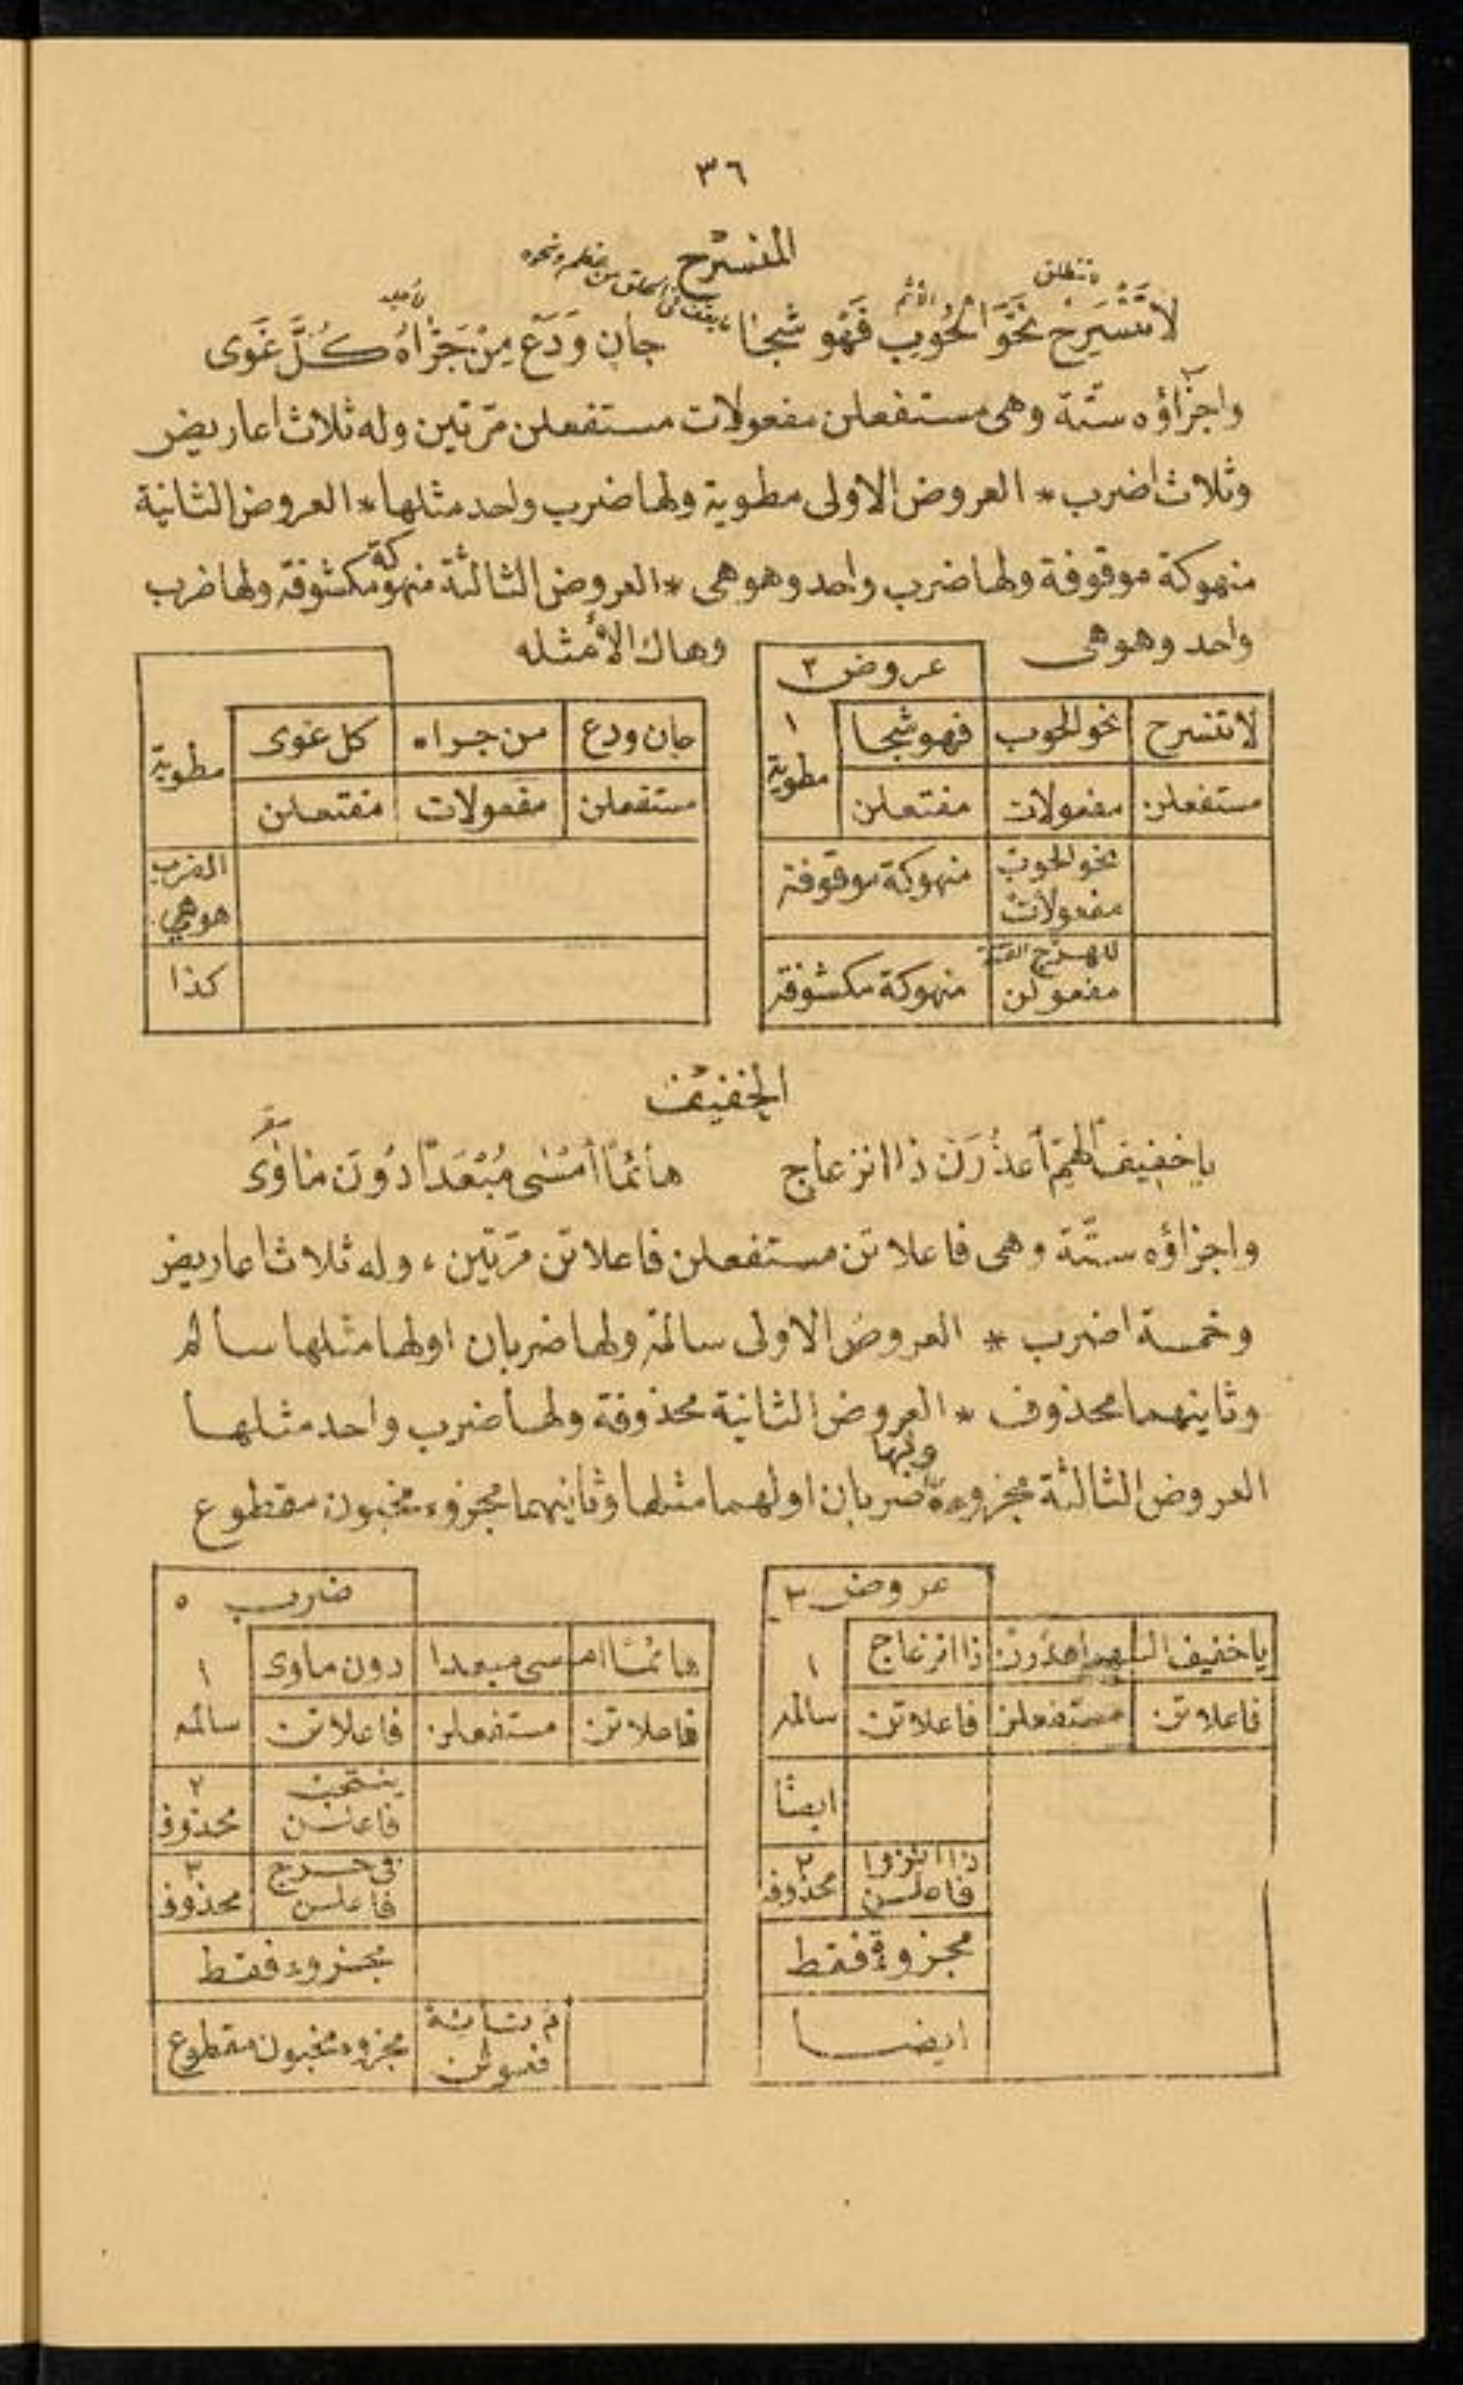 ٣٦
المنسرح
لا تنسرح نحو الحوب فهو شجا جان ودع من جراه كل غوى
واجزاؤه ستة وهى مستفعلن مفعولات مستفعلن مرتين وله ثلاث اعاريض
وثلاث اضرب * العروض الاولى مطوية ولها ضرب واحد مثلها * العروض الثانية
منهوكة موقوفة ولها ضرب واحد وهو هى * العروض الثالثة منهوكة مكشوفة ولها ضرب
واحد وهو هى وهاك الأمثله
عروض ٣
لا تنسرح نحو الحوب فهو شجا ١ مطوية
مستفعلن مفعولات مفتعلن
نحو الحوب منهوكة موقوفة
مفعولات
منهوكة مكشوفة
مفعولن
جان ودع من جراه كل غوى مطوية
مستفعلن مفعولات مفتعلن
الضرب
هو هي
كذا
الخفيف
يا خفيف الهم أعذرن ذا انزعاج هائما أمسى مبعدا دون مأوى
واجزاؤه ستة وهى فاعلاتن مستفعلن فاعلاتن مرتين، وله ثلاث اعاريض
وخمسة اضرب * العروض الاولى سالمة ولها ضربان اولها مثلها سالم
وثانيهما محذوف * العروض الثانية محذوفة ولها ضرب واحد مثلها
العروض الثالثة مجزوءة ولها ضربان اولهما مثلها وثانيهما مجزوء مخبون مقطوع
عروض ٣
يا خفيف ال ذا انزعاج ١
فاعلاتن مستفعلن فاعلاتن سالمه
ايضا
٢
فاعلن محذوفه
مجزوءة فقط
ايضا
ضرب ٥
هائما ام سى مبعدا دون ماوى ١
فاعلاتن مستفعلن فاعلاتن سالمه
٢
فاعلن محذوف
فى حرج ٣
فاعلن محذوف
مجزوء فقط
مجزوء مخبون مقطوع
فعولن